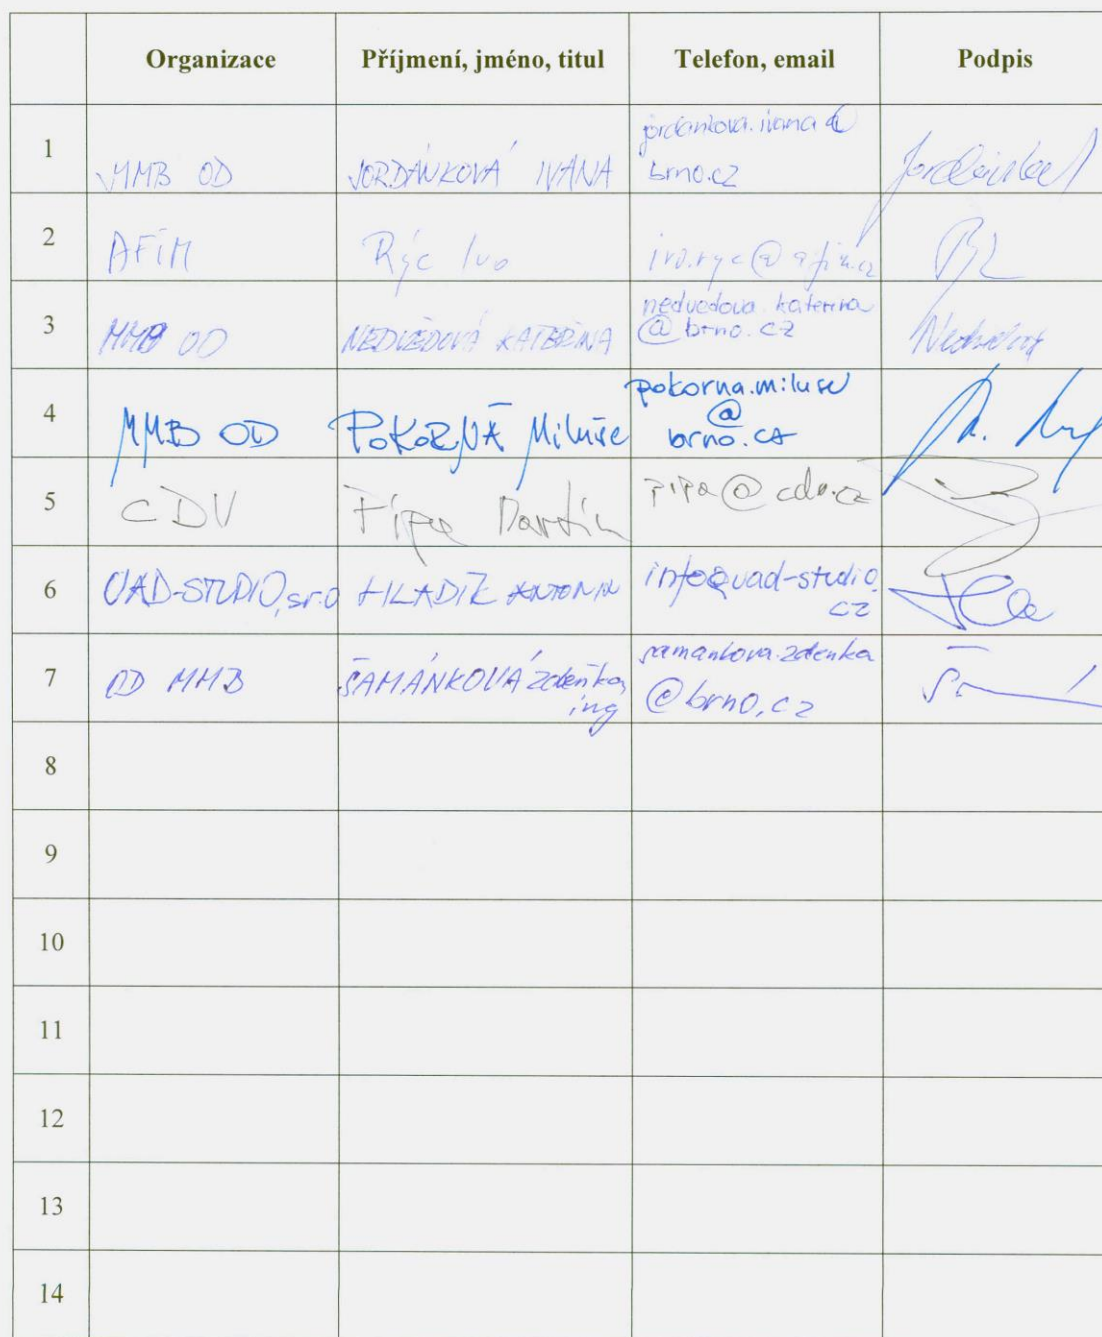 Organizace Příjmení, jméno, titul Telefon, email Podpis
1 MMB OD JORDÁNKOVÁ IVANA jordankova.ivana@
brno.cz
2 AFIM Rýc Ivo ivo.ryc@afim.cz
3 MMB OD NEDVĚDOVÁ KATEŘINA nedvedova.katerina
@brno.cz
4 MMB OD POKORNÁ Miluše pokorna.miluse
@
brno.cz
5 CDV Pípa Martin pipa@cdv.cz
6 UAD-STUDIO, s.r.o HLADÍK ANTONÍN info@uad-studio.
cz
7 OD MMB ŠAMÁNKOVÁ Zdeňka, samankova.zdenka
ing @brno.cz
8
9
10
11
12
13
14